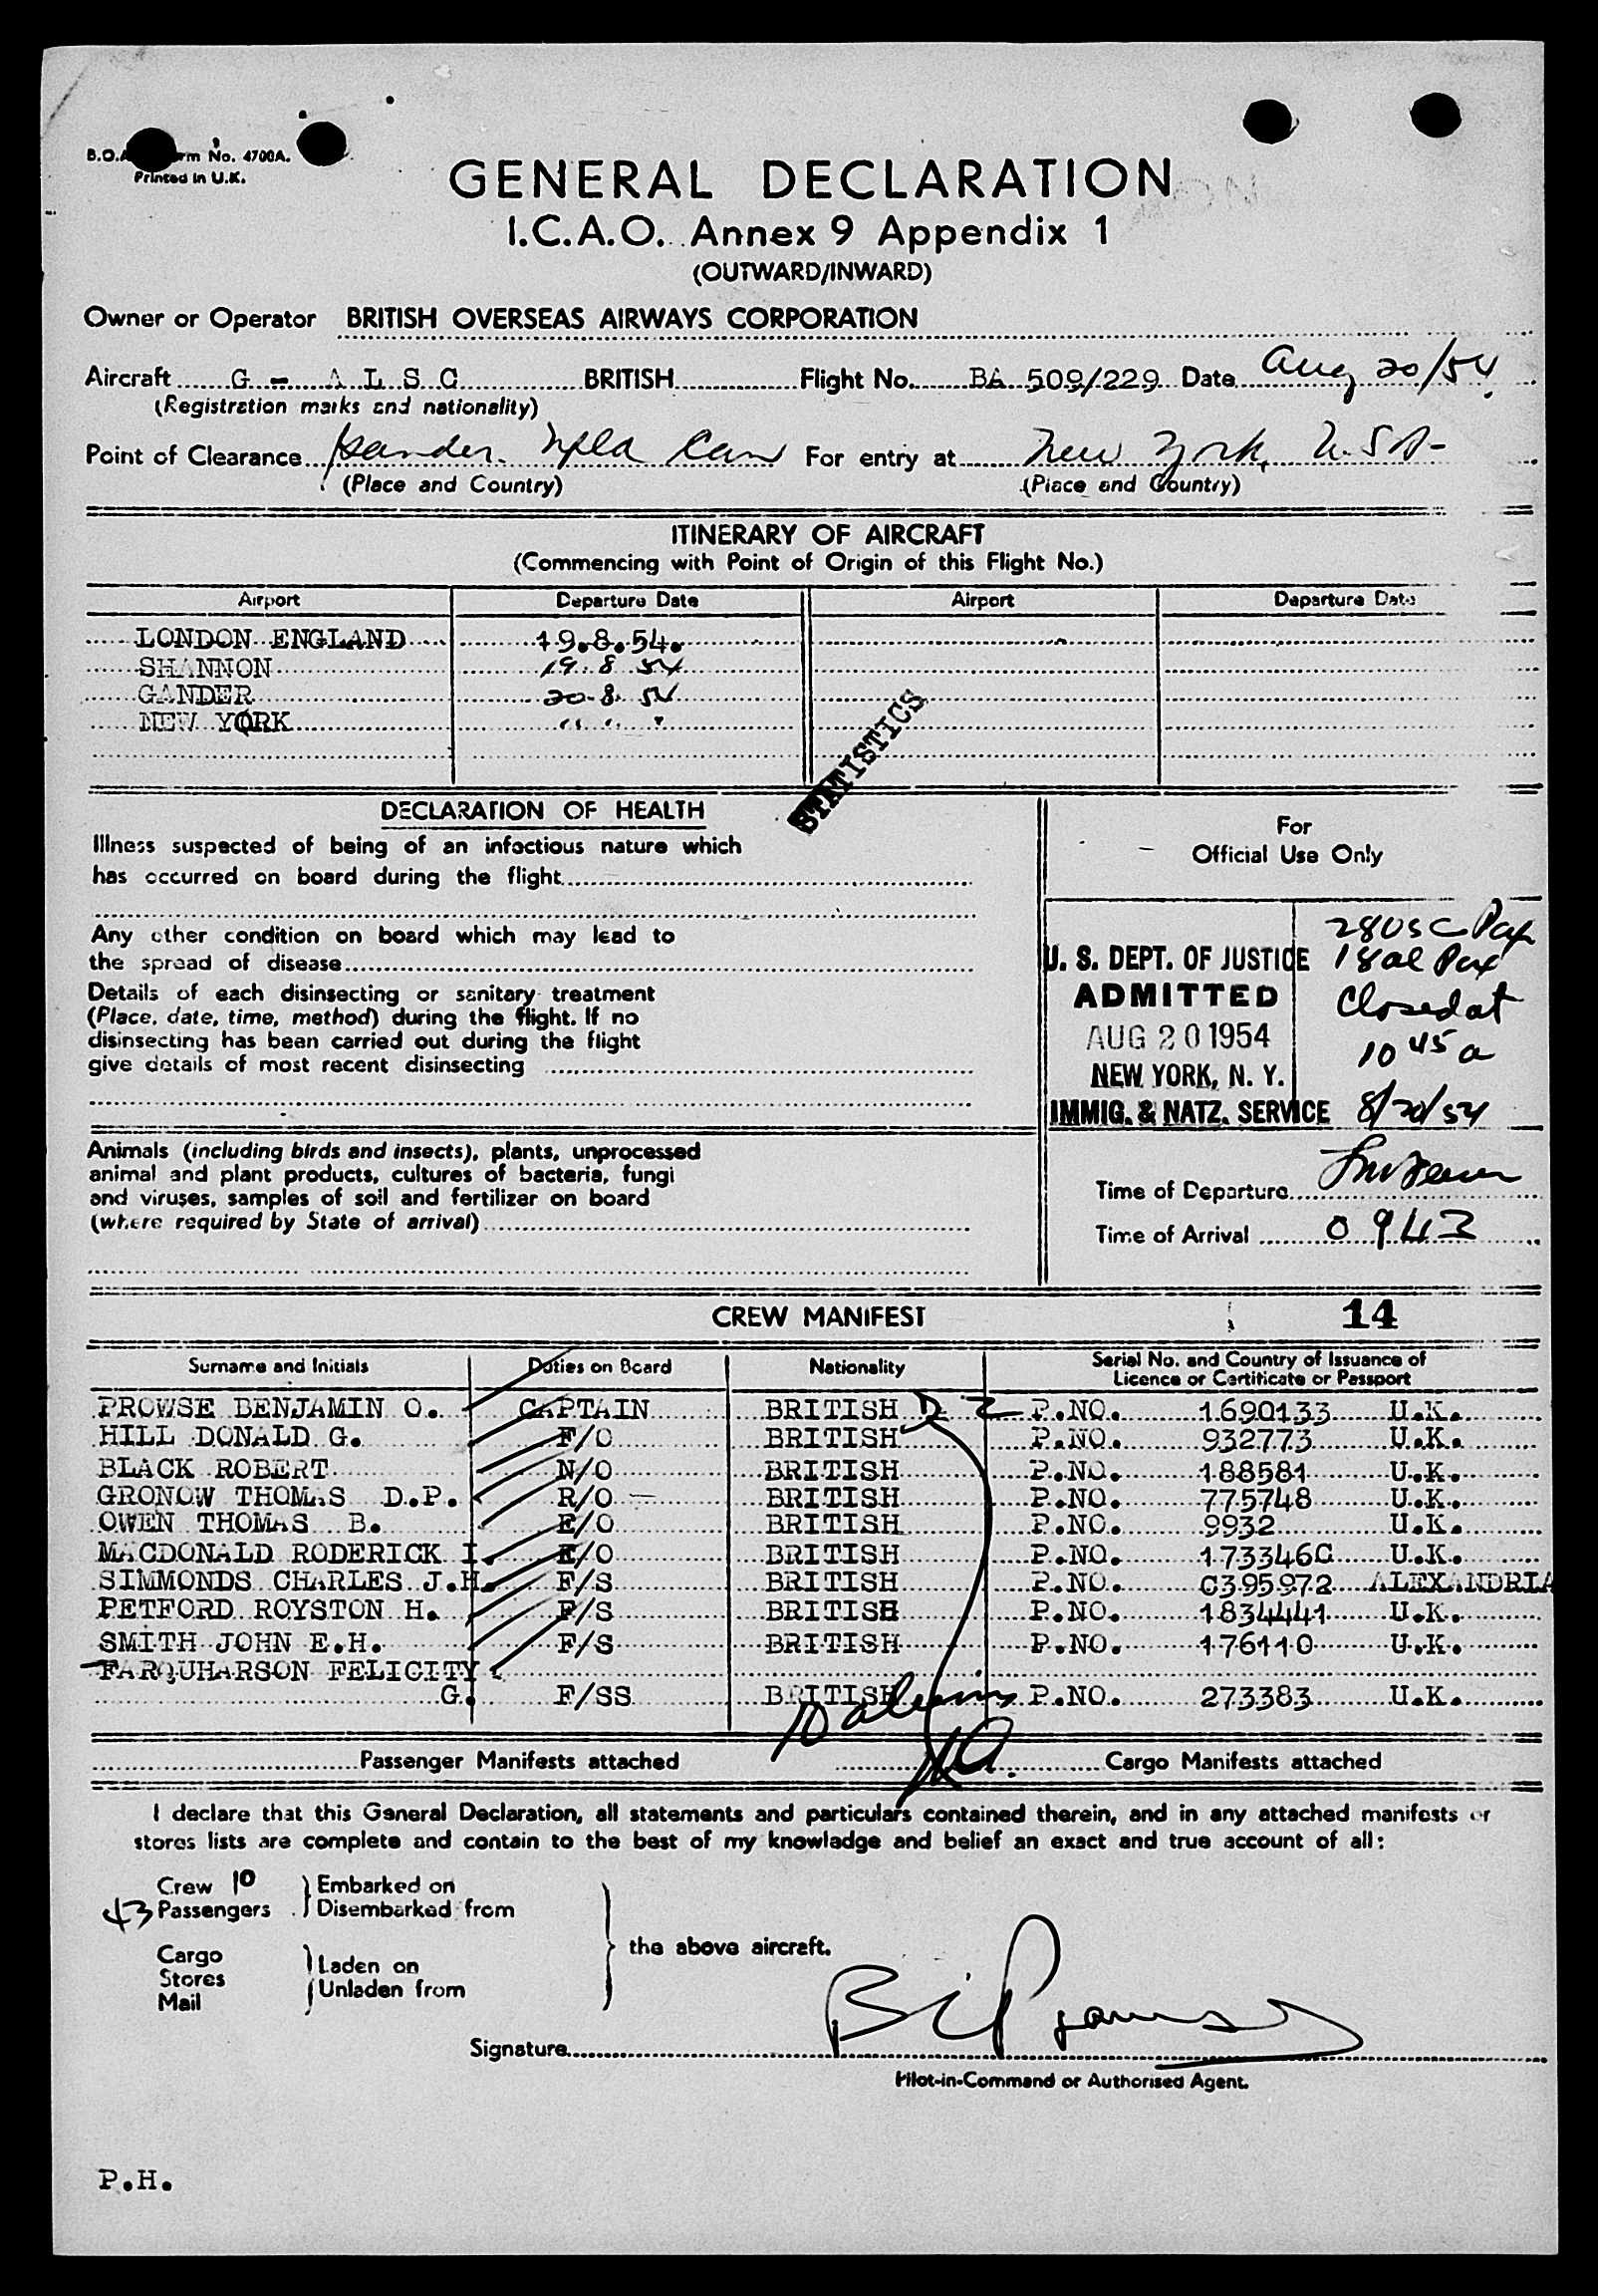 B.O.A. Form No. 4700A.
Printed in U.K.
GENERAL DECLARATION
I.C.A.O. Annex 9 Appendix 1
(OUTWARD/INWARD)
Owner or Operator BRITISH OVERSEAS AIRWAYS CORPORATION
Aircraft G - A L S C BRITISH Flight No. BA 509/229 Date Aug 20/54
(Registration marks and nationality)
Point of Clearance Gander Nfld Can For entry at New York, U.S.A-
(Place and Country) (Place and Country)
ITINERARY OF AIRCRAFT
(Commencing with Point of Origin of this Flight No.)
Airport Departure Date Airport Departure Date
LONDON ENGLAND 19.8.54.
SHANNON 19.8 54
GANDER 20-8. 54
NEW YORK " " "
STATISTICS
DECLARATION OF HEALTH
Illness suspected of being of an infectious nature which
has occurred on board during the flight
Any other condition on board which may lead to
the spread of disease
Details of each disinsecting or sanitary treatment
(Place, date, time, method) during the flight. If no
disinsecting has been carried out during the flight
give details of most recent disinsecting
Animals (including birds and insects), plants, unprocessed
animal and plant products, cultures of bacteria, fungi
and viruses, samples of soil and fertilizer on board
(where required by State of arrival)
For
Official Use Only
28 USC Pax
U. S. DEPT. OF JUSTICE 18 al Pax
ADMITTED Closed at
AUG 20 1954 10 45 a
NEW YORK, N. Y.
IMMIG. & NATZ. SERVICE 8/20/54
Time of Departure
Time of Arrival 0943
CREW MANIFEST 14
Surname and Initials Duties on Board Nationality Serial No. and Country of Issuance of
Licence or Certificate or Passport
PROWSE BENJAMIN O. CAPTAIN BRITISH D 2 P.NO. 1690133 U.K.
HILL DONALD G. F/O BRITISH P.NO. 932773 U.K.
BLACK ROBERT N/O BRITISH P.NO. 188581 U.K.
GRONOW THOMAS D.P. R/O BRITISH P.NO. 775748 U.K.
OWEN THOMAS B. E/O BRITISH P.NO. 9932 U.K.
MACDONALD RODERICK I. E/O BRITISH P.NO. 173346C U.K.
SIMMONDS CHARLES J.H. F/S BRITISH P.NO. C395972 ALEXANDRIA
PETFORD ROYSTON H. F/S BRITISH P.NO. 1834441 U.K.
SMITH JOHN E.H. F/S BRITISH P.NO. 176110 U.K.
FARQUHARSON FELICITY
G. F/SS BRITISH P.NO. 273383 U.K.
10 aliens
Passenger Manifests attached Cargo Manifests attached
I declare that this General Declaration, all statements and particulars contained therein, and in any attached manifests or
stores lists are complete and contain to the best of my knowladge and belief an exact and true account of all:
Crew 10 Embarked on
43 Passengers Disembarked from
the above aircraft.
Cargo Laden on
Stores Unladen from
Mail
Signature
Pilot-in-Command or Authorised Agent.
P.H.